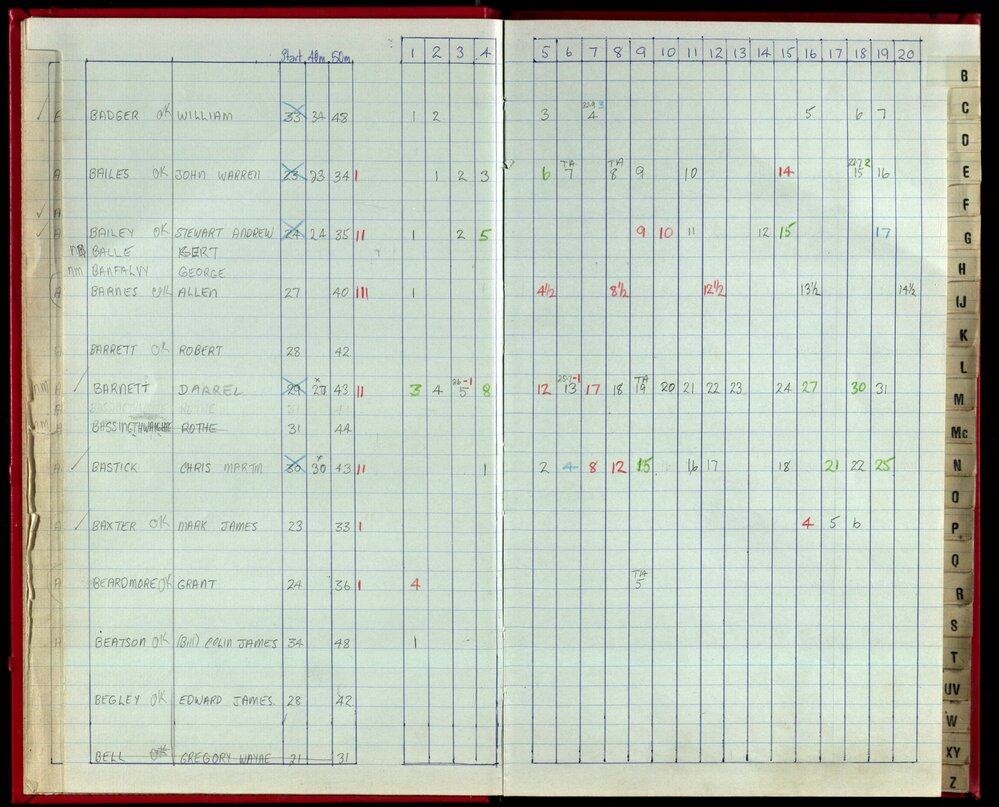 Start 40m 50m 1 2 3 4 5 6 7 8 9 10 11 12 13 14 15 16 17 18 19 20
BADGER OK WILLIAM 33 34 48 1 2 3 22.9 3 4 5 6 7
A BAILES OK JOHN WARREN 23 23 34 I 1 2 3 6 TA 7 TA 8 9 10 14 22.7 2 15 16
A
A BAILEY OK STEWART ANDREW 24 24 35 II 1 2 5 9 10 11 14 15 17
BALLE BERT
nm BANFALVY GEORGE
A BARNES OK ALLEN 27 40 III 1 4½ 8½ 12½ 13½ 14½
A BARRETT OK ROBERT 28 42
nm A BARNETT DARREL 29 x 27 43 II 3 4 26 -1 5 8 12 25.7 -1 13 17 18 TA 19 20 21 22 23 24 27 30 31
A ROTHE 31
nm A BASSINGTHWAIGHTE ROTHE 31 44
A BASTICK CHRIS MARTIN 30 x 30 43 II 1 2 4 8 12 15 16 17 18 21 22 25
A BAXTER OK MARK JAMES 23 33 I 4 5 6
A BEARDMORE OK GRANT 24 36 I 4 TA 5
A BEATSON OK (Bill) COLIN JAMES 34 48 1
BEGLEY OK EDWARD JAMES. 28 42
BELL OK GREGORY WAYNE 21 31
B
C
D
E
F
G
H
IJ
K
L
M
Mc
N
O
P
Q
R
S
T
UV
W
XY
Z